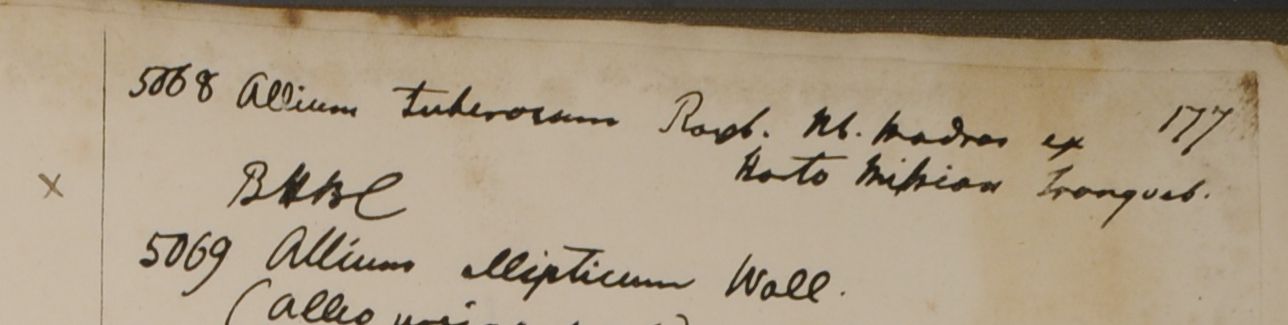 5068 Allium tuberosum Roxb. Hb. Madras ex 177
Horto Mission Tranqueb.
BHBC
5069 Allium ellipticum Wall.
(Allio